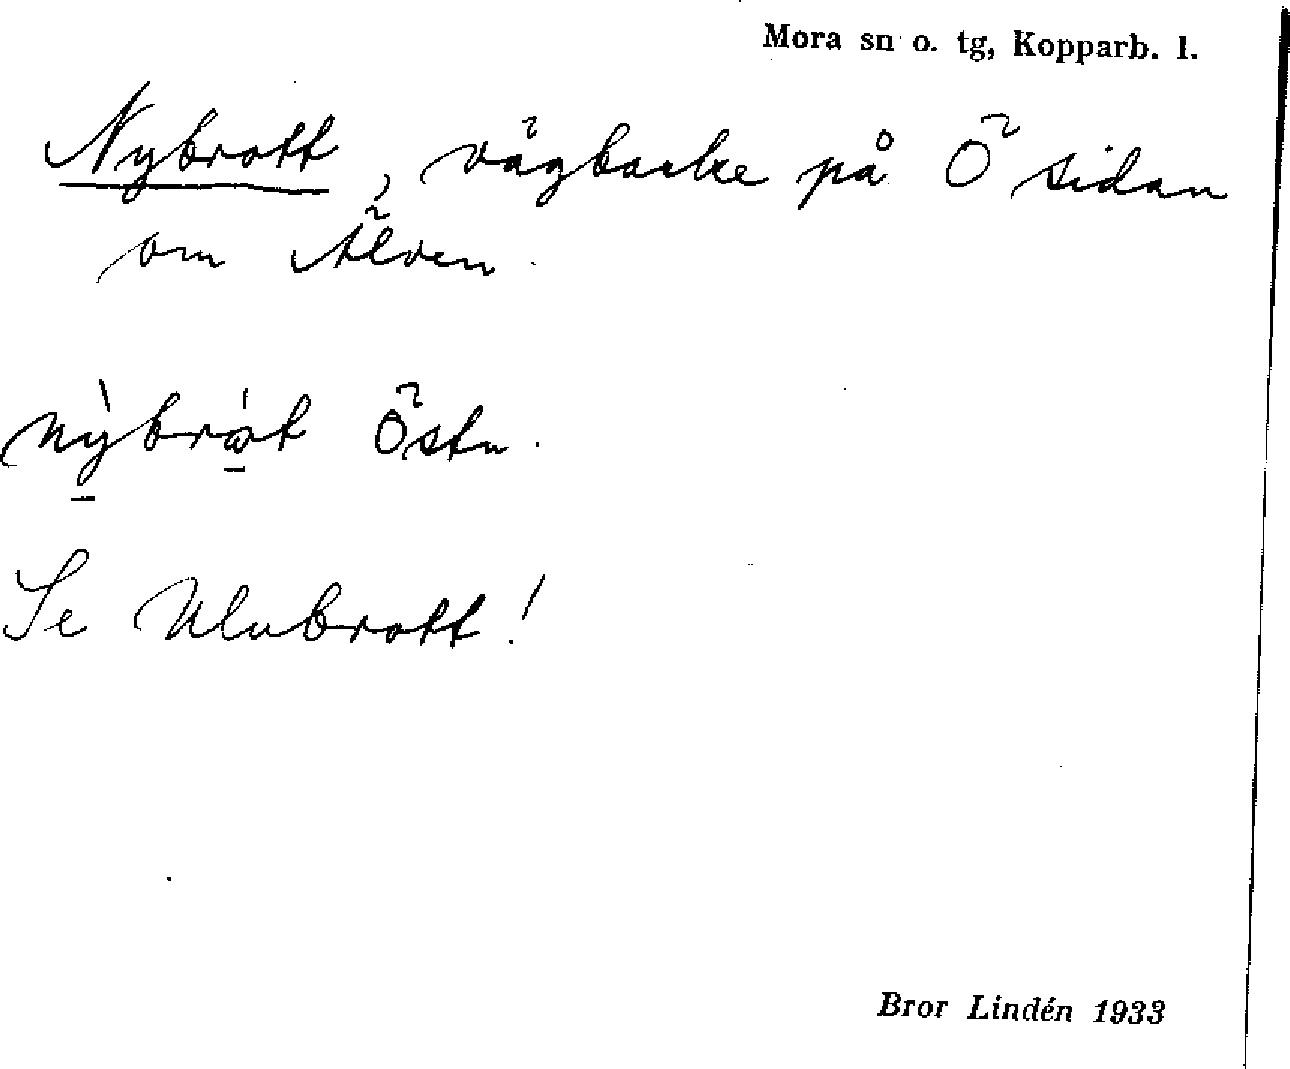 Mora sn o. tg, Kopparb. l.
Nybrott, vägbacke på Ö sidan
om Älven.
Östn.
Se Ulvbrott!
Bror Lindén 1933